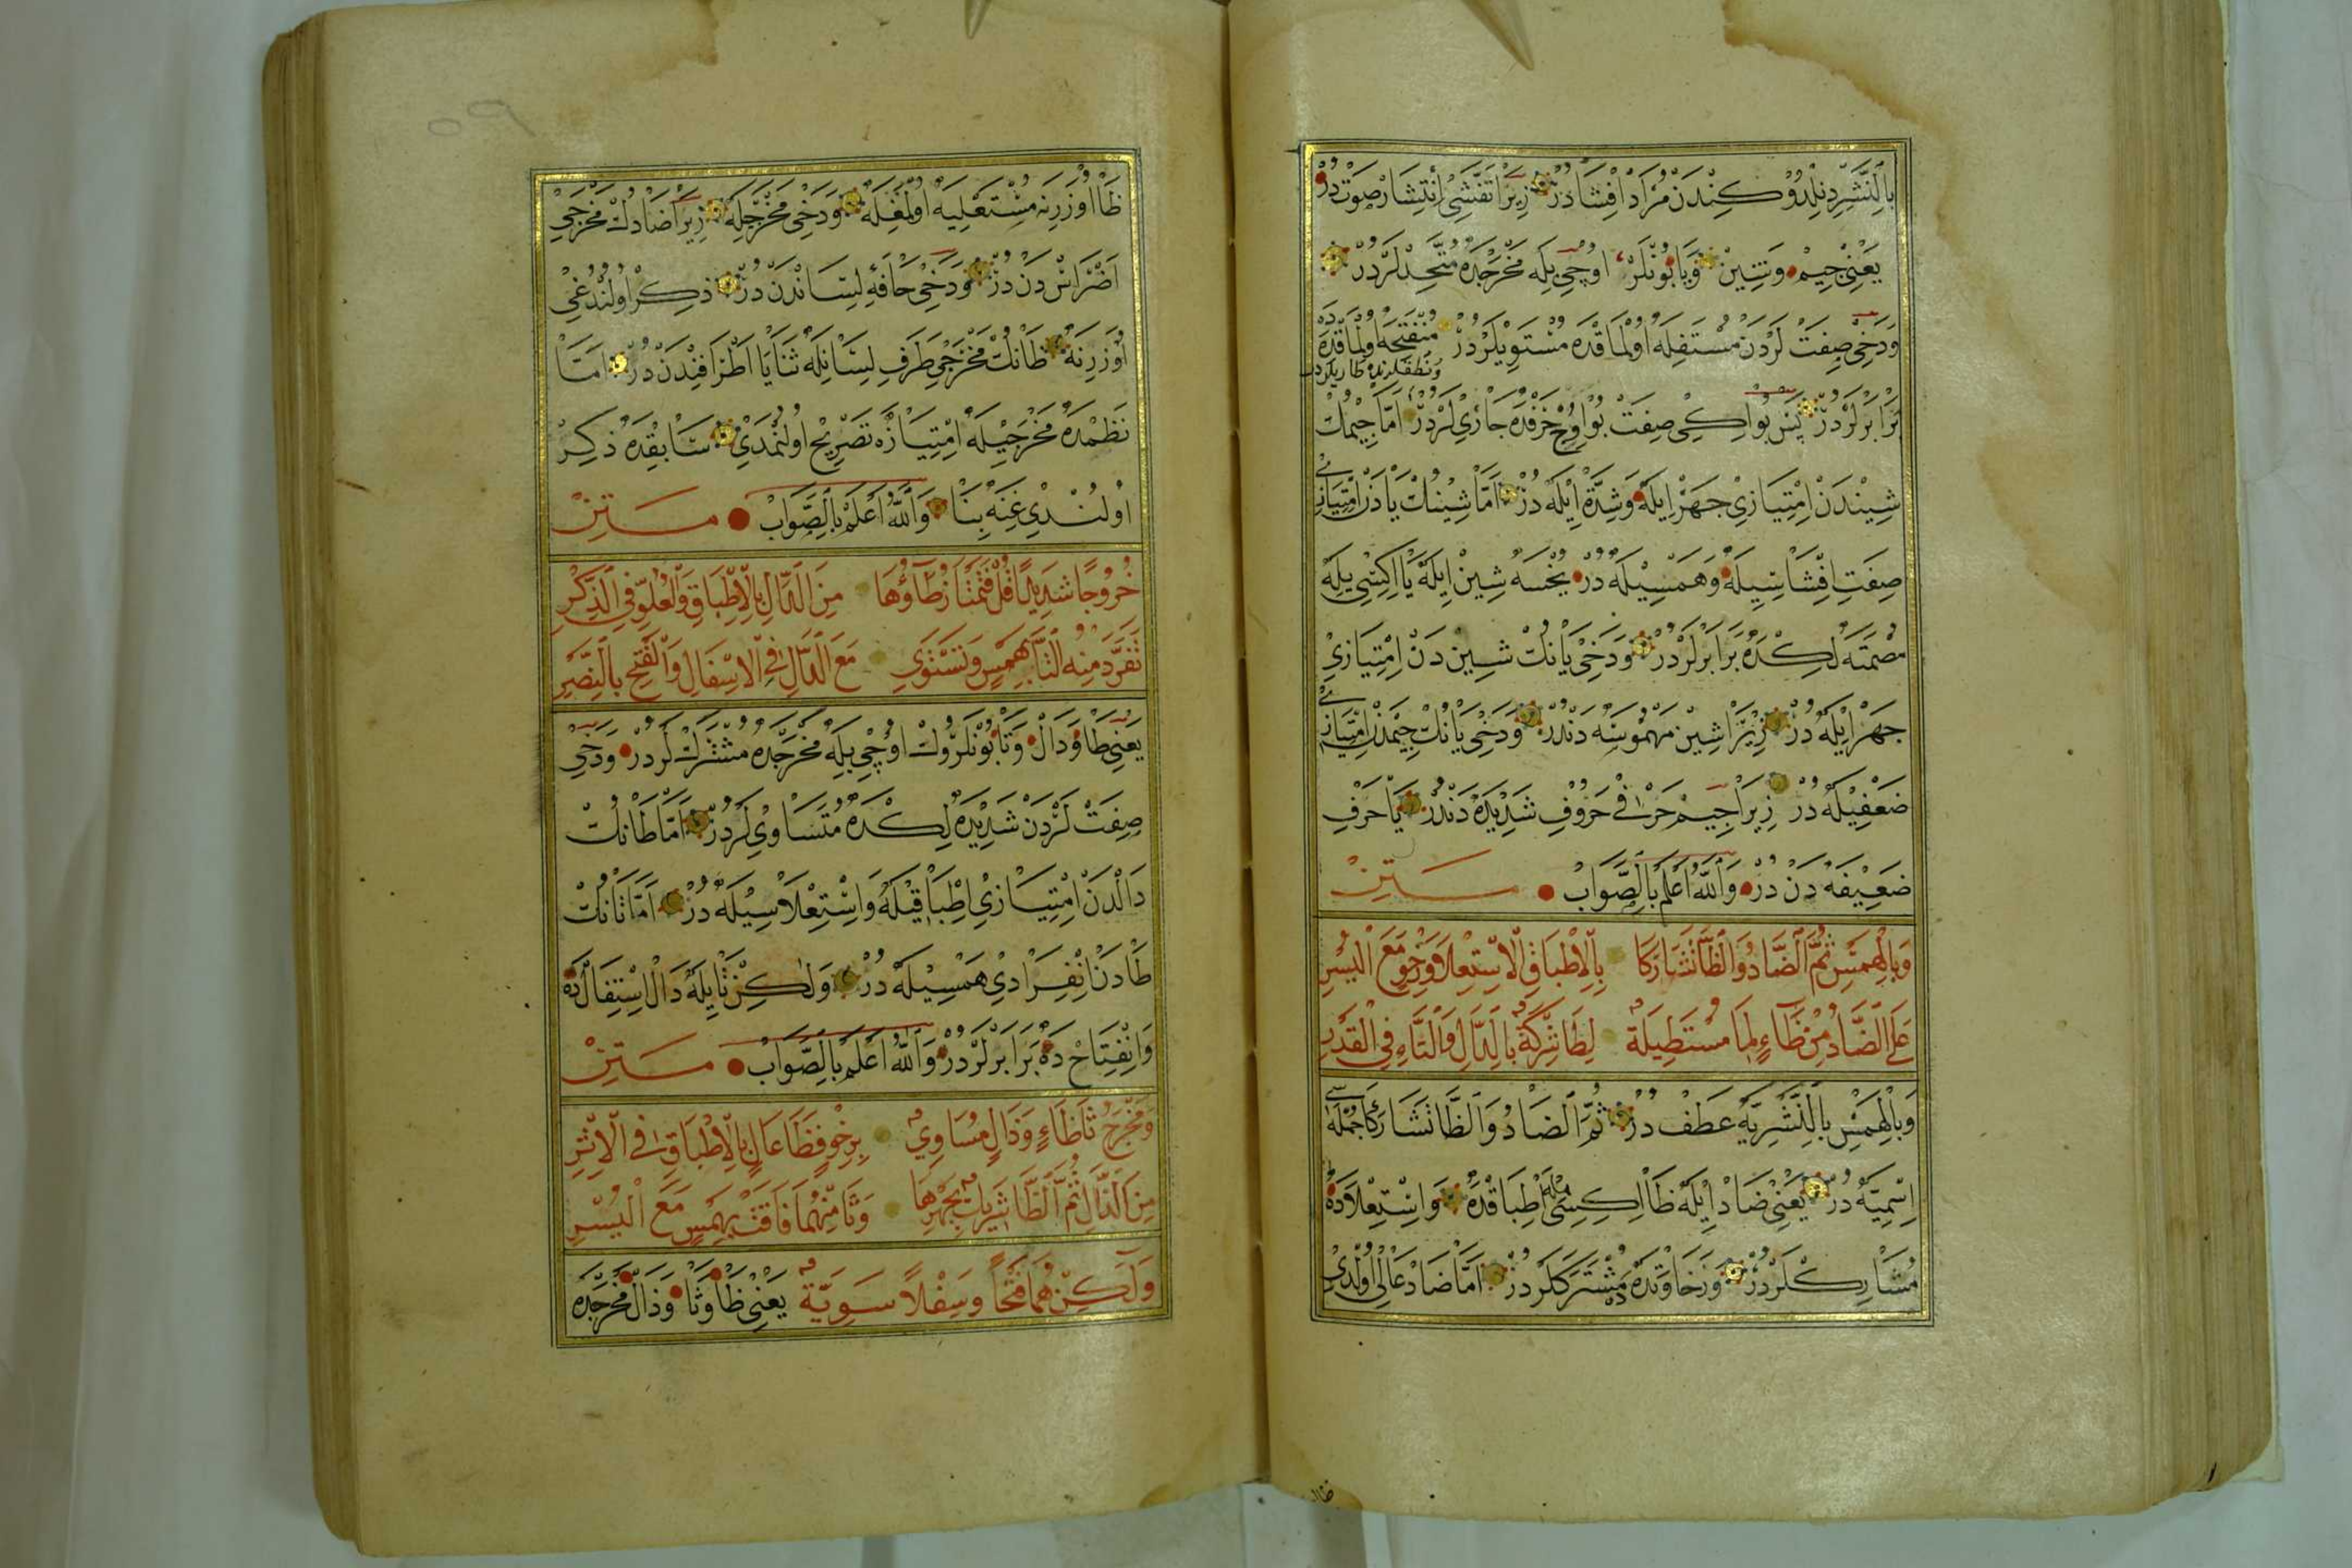 بِالنَّشْرِ دِنِلْدُوكِنْدَنْ مُرَادْ اِفْشَادُرْ زِيرَا تَفَشِّى اِنْتِشَارْ صَوْتْ دُرْ
يَعْنِى جِيمْ وَشِينْ وَيَا بُونْلَرْ اُوچِى بِلَه مَخْرَجْدَه مُتَّحِدْلَرْدُرْ
وَدَخِى صِفَتْ لَرْدَنْ مُسْتَفِلَه اُولْمَاقْدَه مُسْتَوِيلَرْدُرْ مُنْفَتِحَه اُولْمَاقْدَه دَه
بَرَابَرْلَرْدُرْ پَسْ بُو اِكِى صِفَتْ بُو اُوچْ حَرْفْدَه جَارِى لَرْدُرْ اَمَّا جِيمُكْ
شِينْدَنْ اِمْتِيَازِى جَهَرْ اِيلَه وَشِدَّة اِيلَه دُرْ اَمَّا شِينُكْ يَادَنْ اِمْتِيَازِى
صِفَتِ اِفْشَاسِيلَه وَهَمْسِيلَه دُرْ يُخْسَه شِينْ اِيلَه يَا اِكِسِى بِلَه
مُصْمَتَه لِكْدَه بَرَابَرْلَرْدُرْ وَدَخِى يَانُكْ شِينْ دَنْ اِمْتِيَازِى
جَهَرْ اِيلَه دُرْ زِيرَا شِينْ مَهْمُوسَه دَنْدُرْ وَدَخِى يَانُكْ جِيمْدَنْ اِمْتِيَازِى
ضَعْفِيلَه دُرْ زِيرَا جِيمْ حَرْفِ حُرُوفِ شَدِيدَه دَنْدُرْ يَا حَرْفِ
ضَعِيفَه دَنْ دُرْ وَاللّٰهُ اَعْلَمُ بِالصَّوَابْ مَتِنْ
وَبِالْهَمْسِ ثُمَّ الضَّادُ وَالظَّا تَشَارَكَا بِالْاِطْبَاقِ الْاِسْتِعْلَا وَرِخْوٍ مَعَ الْيُسْرِ
عَلَى الضَّادُ مِنْ ظَاءٍ لِمَا مُسْتَطِيلَةٌ لِطَا شِرْكَةٌ بِالدَّالِ وَالتَّاءِ فِى الْقَدْرِ
وَبِالْهَمْسِ بِالنَّشْرِ يَه عَطَفْ دُرْ ثُمَّ الضَّادُ وَالظَّا تَشَارَكَا جُمْلَۀ
اِسْمِيَّه دُرْ يَعْنِى ضَادْ اِيلَه ظَا اِكِسِى بِلَه اِطْبَاقْدَه وَاِسْتِعْلَادَه
مُشَارِكْلَرْدُرْ وَرَخَاوَتْدَه دَه مُشْتَرَكْلَرْدُرْ اَمَّا ضَادْ عَالِى اُولْدِى
ظَا اُوزَرِنَه مُسْتَعْلِيَه اُولْمَغِلَه وَدَخِى مَخْرَجِلَه زِيرَا ضَادُكْ مَخْرَجِى
اَضْرَاسْ دَنْ دُرْ وَدَخِى حَافَۀِ لِسَانْدَنْ دُرْ ذِكِرْ اُولُنْدُغِى
اُوزَرِنَه ظَانُكْ مَخْرَجِى طَرَفِ لِسَانِلَه ثَنَايَا اَطْرَافِنْدَنْ دُرْ اَمَّا
نَظْمْدَه مَخْرَجِيلَه اِمْتِيَازَه تَصْرِيحْ اُولُنْمَدِى سَابِقْدَه ذِكِرْ
اُولُنْدِى غِنَه بِنَا وَاللّٰهُ اَعْلَمُ بِالصَّوَابْ مَتِنْ
خُرُوجًا شَدِيدًا قُلْ فَتَمْتَازُ طَاؤُهَا مِنَ الدَّالِ بِالْاِطْبَاقِ وَالْعُلُوِّ فِى الذِّكْرِ
تَفَرَّدَ مِنْهُ التَّا بِهَمْسٍ وَتَسْتَوِى مَعَ الدَّالِ فِى الْاِسْفَالِ وَالْفَتْحِ بِالنَّصْرِ
يَعْنِى طَا وَدَالْ وَتَا بُونْلَرُوكْ اُوچِى بِلَه مَخْرَجْدَه مُشْتَرَكْ لَرْدُرْ وَدَخِى
صِفَتْ لَرْدَنْ شَدِيدَه لِكْدَه مُتَسَاوِى لَرْدُرْ اَمَّا طَانُكْ
دَالْدَنْ اِمْتِيَازِى اِطْبَاقِيلَه وَاِسْتِعْلَاسِيلَه دُرْ اَمَّا تَانُكْ
طَادَنْ اِنْفِرَادِى هَمْسِيلَه دُرْ وَلٰكِنْ تَا اِيلَه دَالْ اِسْتِفَالْدَه
وَاِنْفِتَاحْ دَه بَرَابَرْلَرْدُرْ وَاللّٰهُ اَعْلَمُ بِالصَّوَابْ مَتِنْ
وَمَخْرَجُ ثَا ظَاءٍ وَذَالٍ مُسَاوِىٌ بِرِخْوٍ فَظَا عَالٍ بِالْاِطْبَاقِ فِى الْاِثْرِ
مِنَ الذَّالِ ثُمَّ الظَّا شَرِيكٌ بِجَهْرِهَا وَثَا مِنْهُمَا فَاقَتْ بِهَمْسٍ مَعَ الْيُسْرِ
وَلٰكِنْ هُمَا فَتْحًا وَسِفْلًا سَوِيَّةٌ يَعْنِى ظَا وَثَا وَذَالْ مَخْرَجْدَه